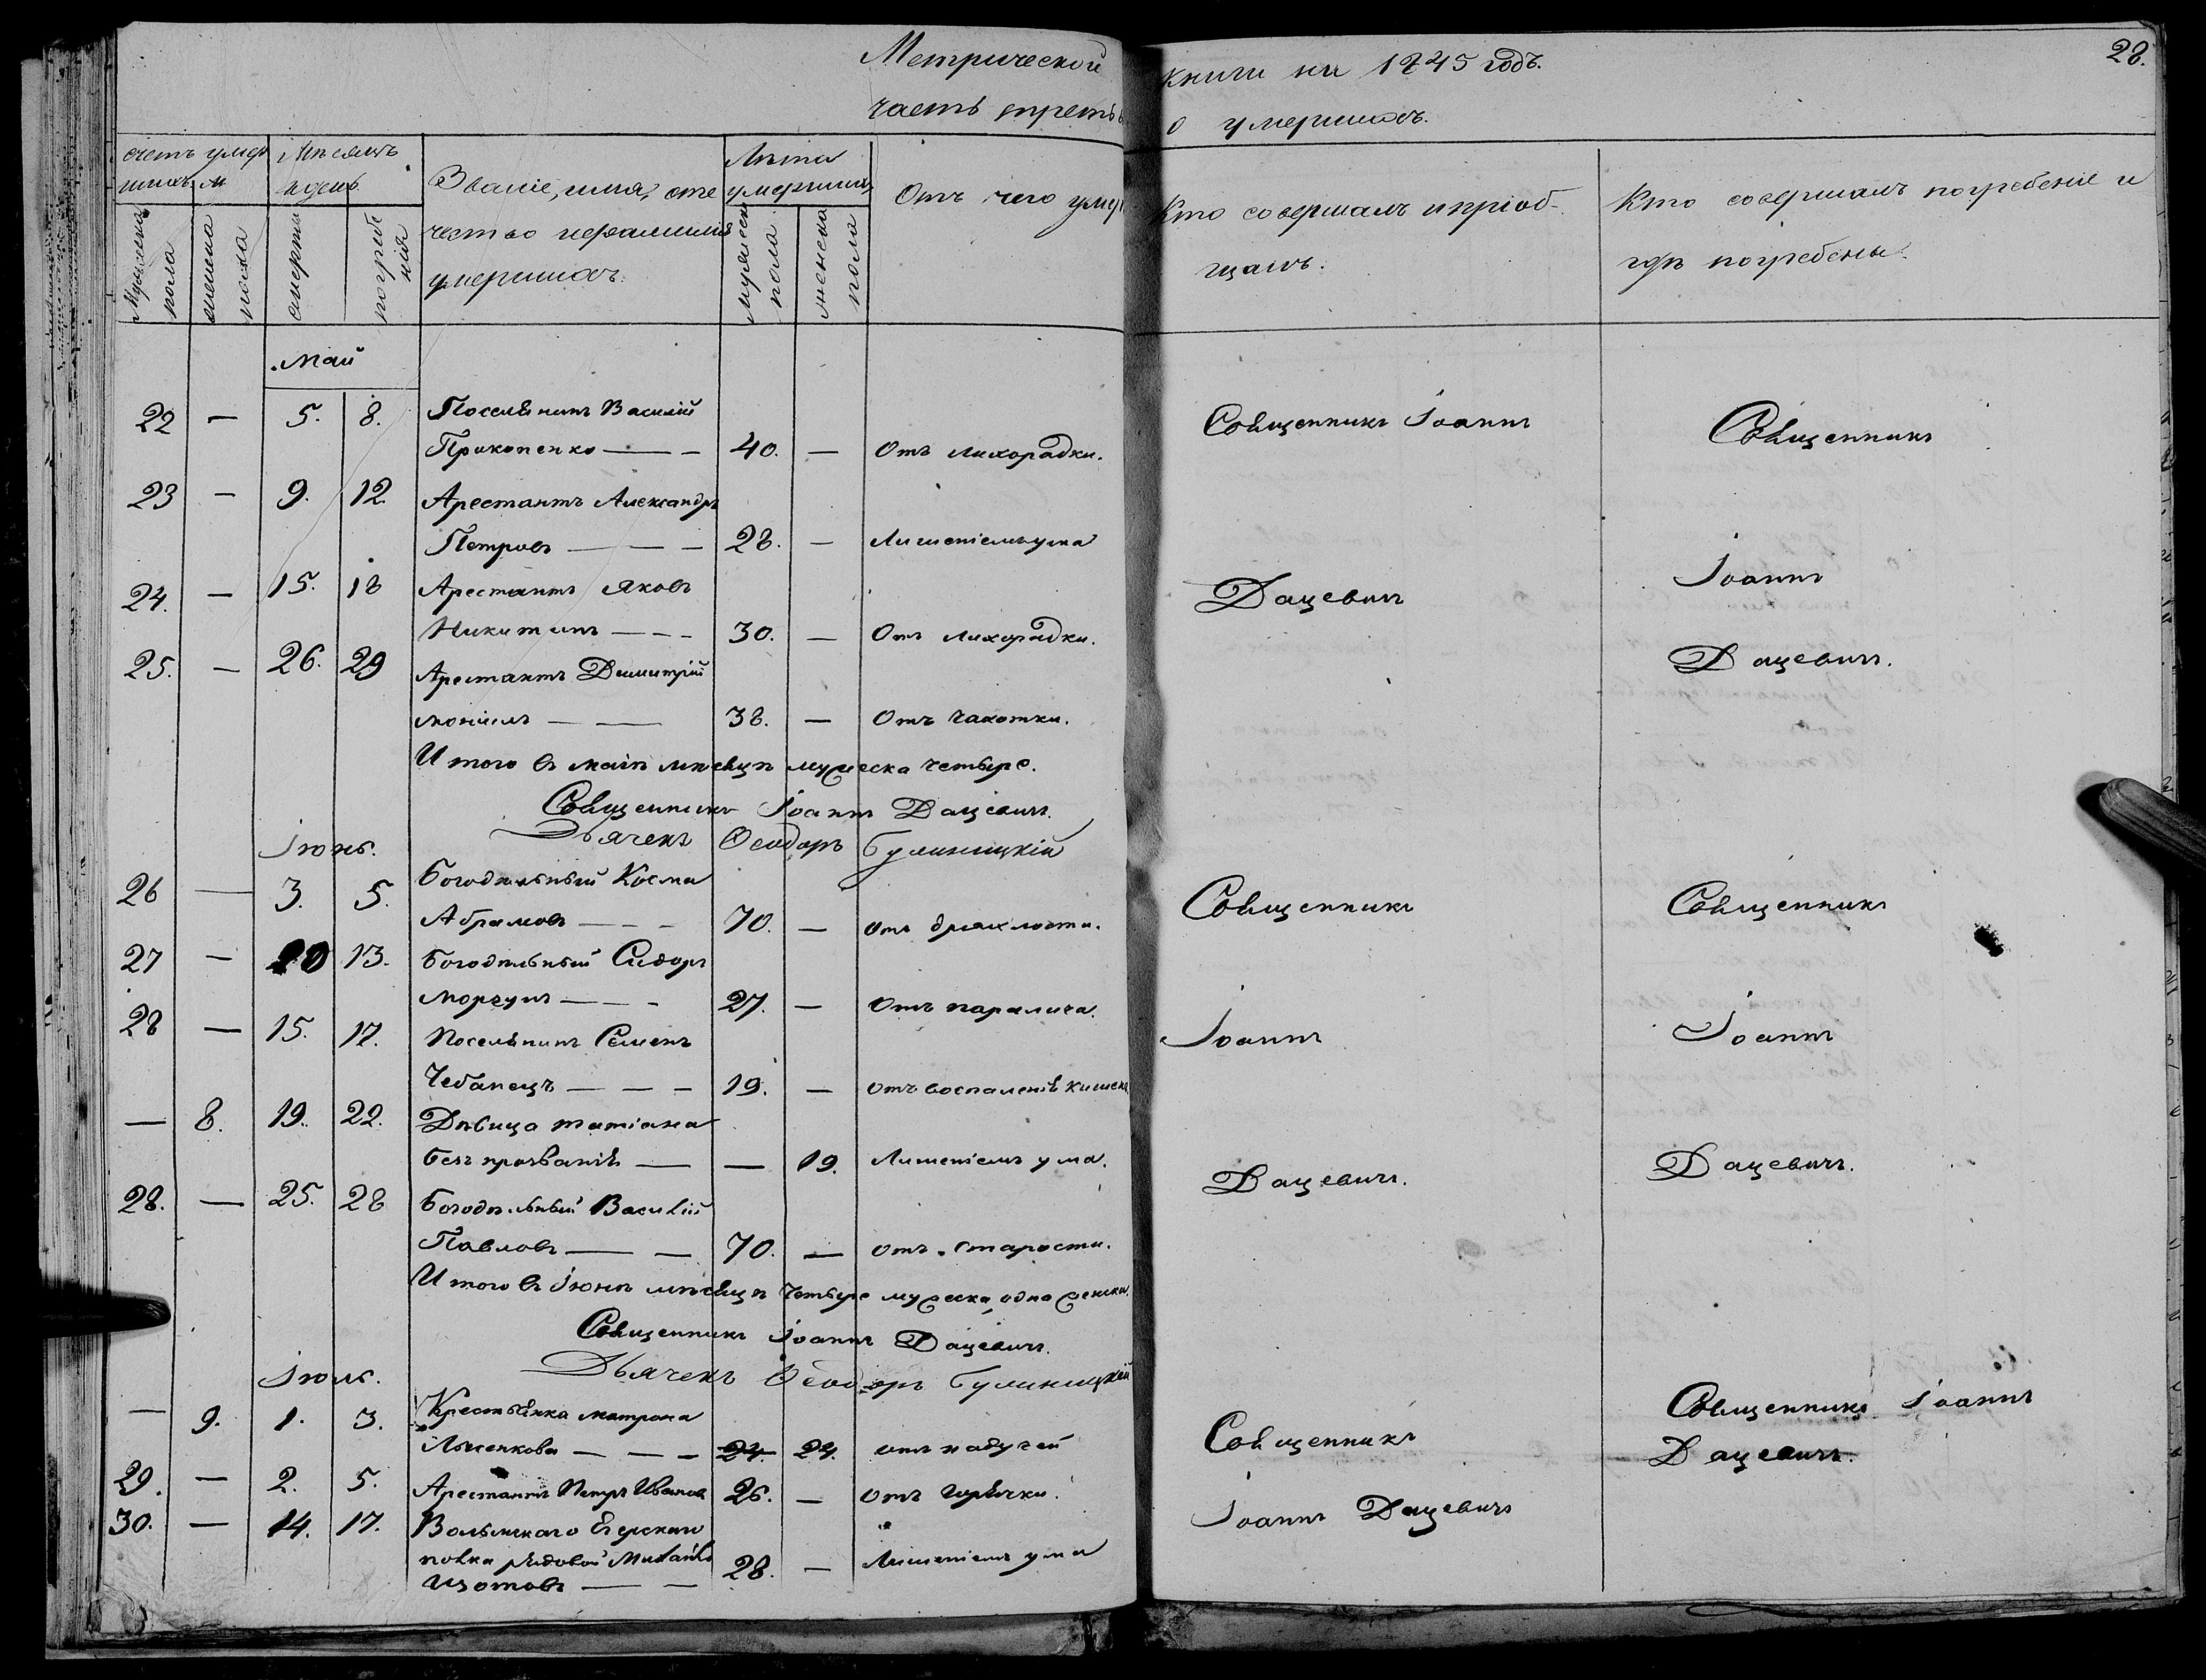 Метрической книги на 1845 годъ.
28.
часть треть о умершихъ.
счетъ умер
шихъ
Мѣсяцъ
и день
Званіе, имя, оте
чество и фамилія
умершихъ.
Лѣта
умершихъ
Отъ чего умер
Кто совершалъ и пріоб-
щалъ.
Кто совершалъ погребеніе и
гдѣ погребены.
Мужеска
пола
женска
пола
смерти
погребе
нія
мужеска
пола
женска
пола
Май
22 — 5. 8. Поселянинъ Василій
Прокопенко — — 40. — Отъ лихорадки.
Священникъ Іоаннъ
Священникъ
23 — 9. 12. Арестантъ Александръ
Петровъ — — — 28. — Лишеніемъ ума
24. — 15. 18 Арестантъ Яковъ
Никитинъ — — — 30. — Отъ лихорадки.
Дацевичъ
Іоаннъ
25. — 26. 29 Арестантъ Димитрій
— — 38. — Отъ чахотки.
Дацевичъ.
Итого въ маѣ мѣсяцѣ мужеска четыре.
Священникъ Іоаннъ Дацевичъ.
Дьячекъ Ѳеодоръ
Іюнь.
26 — 3. 5. Богодѣльный Косма
Абрамовъ — — — 70. — отъ дряхлости.
Священникъ
Священникъ
27 — 10 13. Богодѣльный Сидоръ
Моргунъ — — — 27. — Отъ паралича.
28 — 15. 17. Поселянинъ Семенъ
Чебанецъ — — — 19. — отъ воспаленія кишекъ
Іоаннъ
Іоаннъ
— 8. 19. 22. Дѣвица Татіана
безъ прозванія — — 19. Лишеніемъ ума.
Дацевичъ.
Дацевичъ.
28. — 25. 28 Богодѣльный Василій
Павловъ — — 70. — отъ старости.
Итого въ Іюнѣ мѣсяцѣ четыре мужеска, одна женска.
Священникъ Іоаннъ Дацевичъ.
Дьячекъ Ѳеодоръ
Іюль.
— 9. 1. 3. Крестьянка Матрона
— — — 24. 24. отъ падучей
Священникъ
Священникъ Іоаннъ
Дацевичъ.
29. — 2. 5. Арестантъ Петръ Ивановъ 26. — Отъ горячки.
30. — 14. 17. Волынскаго Егерскаго
полка рядовой Михайло
Изотовъ — — 28. — Лишеніемъ ума
Іоаннъ Дацевичъ